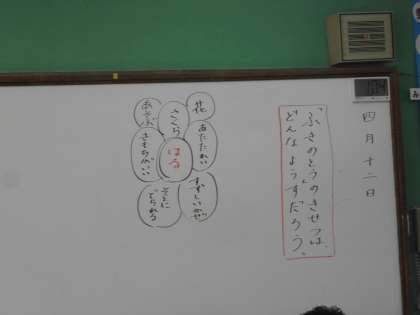 四月十二日
「ふきのとう」のきせつは、
どんなようすだろう。
花
さくら
あそぶ
あたたかい
はる
きもちがいい
すずしいかぜ
そとに
でられる